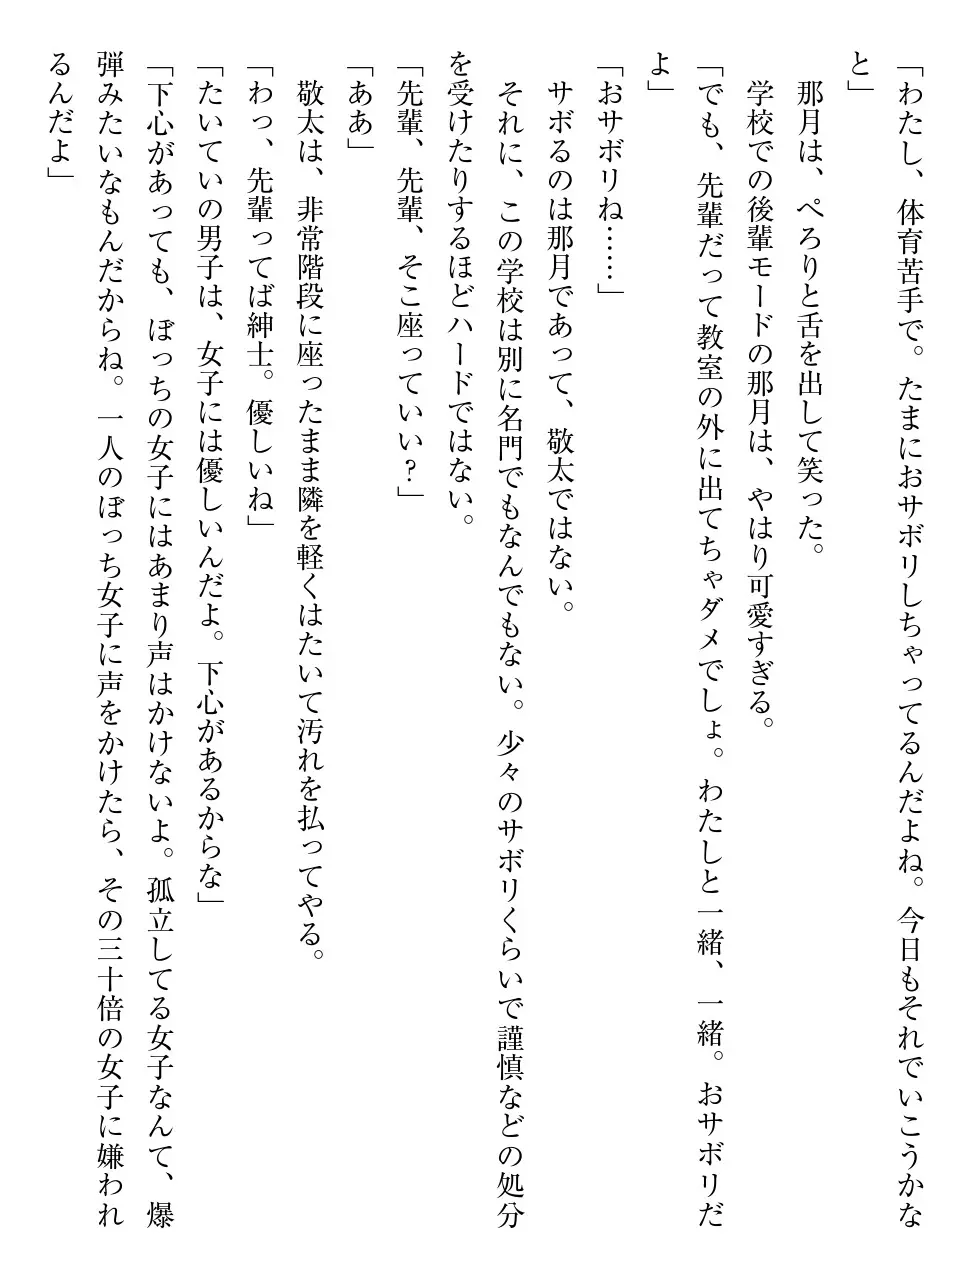 「わたし、体育苦手で。たまにおサボリしちゃってるんだよね。今日もそれでいこうかな
と」
那月は、ぺろりと舌を出して笑った。
学校での後輩モードの那月は、やはり可愛すぎる。
「でも、先輩だって教室の外に出てちゃダメでしょ。わたしと一緒、一緒。おサボリだ
よ」
「おサボリね……」
サボるのは那月であって、敬太ではない。
それに、この学校は別に名門でもなんでもない。少々のサボリくらいで謹慎などの処分
を受けたりするほどハードではない。
「先輩、先輩、そこ座っていい?」
「ああ」
敬太は、非常階段に座ったまま隣を軽くはたいて汚れを払ってやる。
「わっ、先輩ってば紳士。優しいね」
「たいていの男子は、女子には優しいんだよ。下心があるからな」
「下心があっても、ぼっちの女子にはあまり声はかけないよ。孤立してる女子なんて、爆
弾みたいなもんだからね。一人のぼっち女子に声をかけたら、その三十倍の女子に嫌われ
るんだよ」